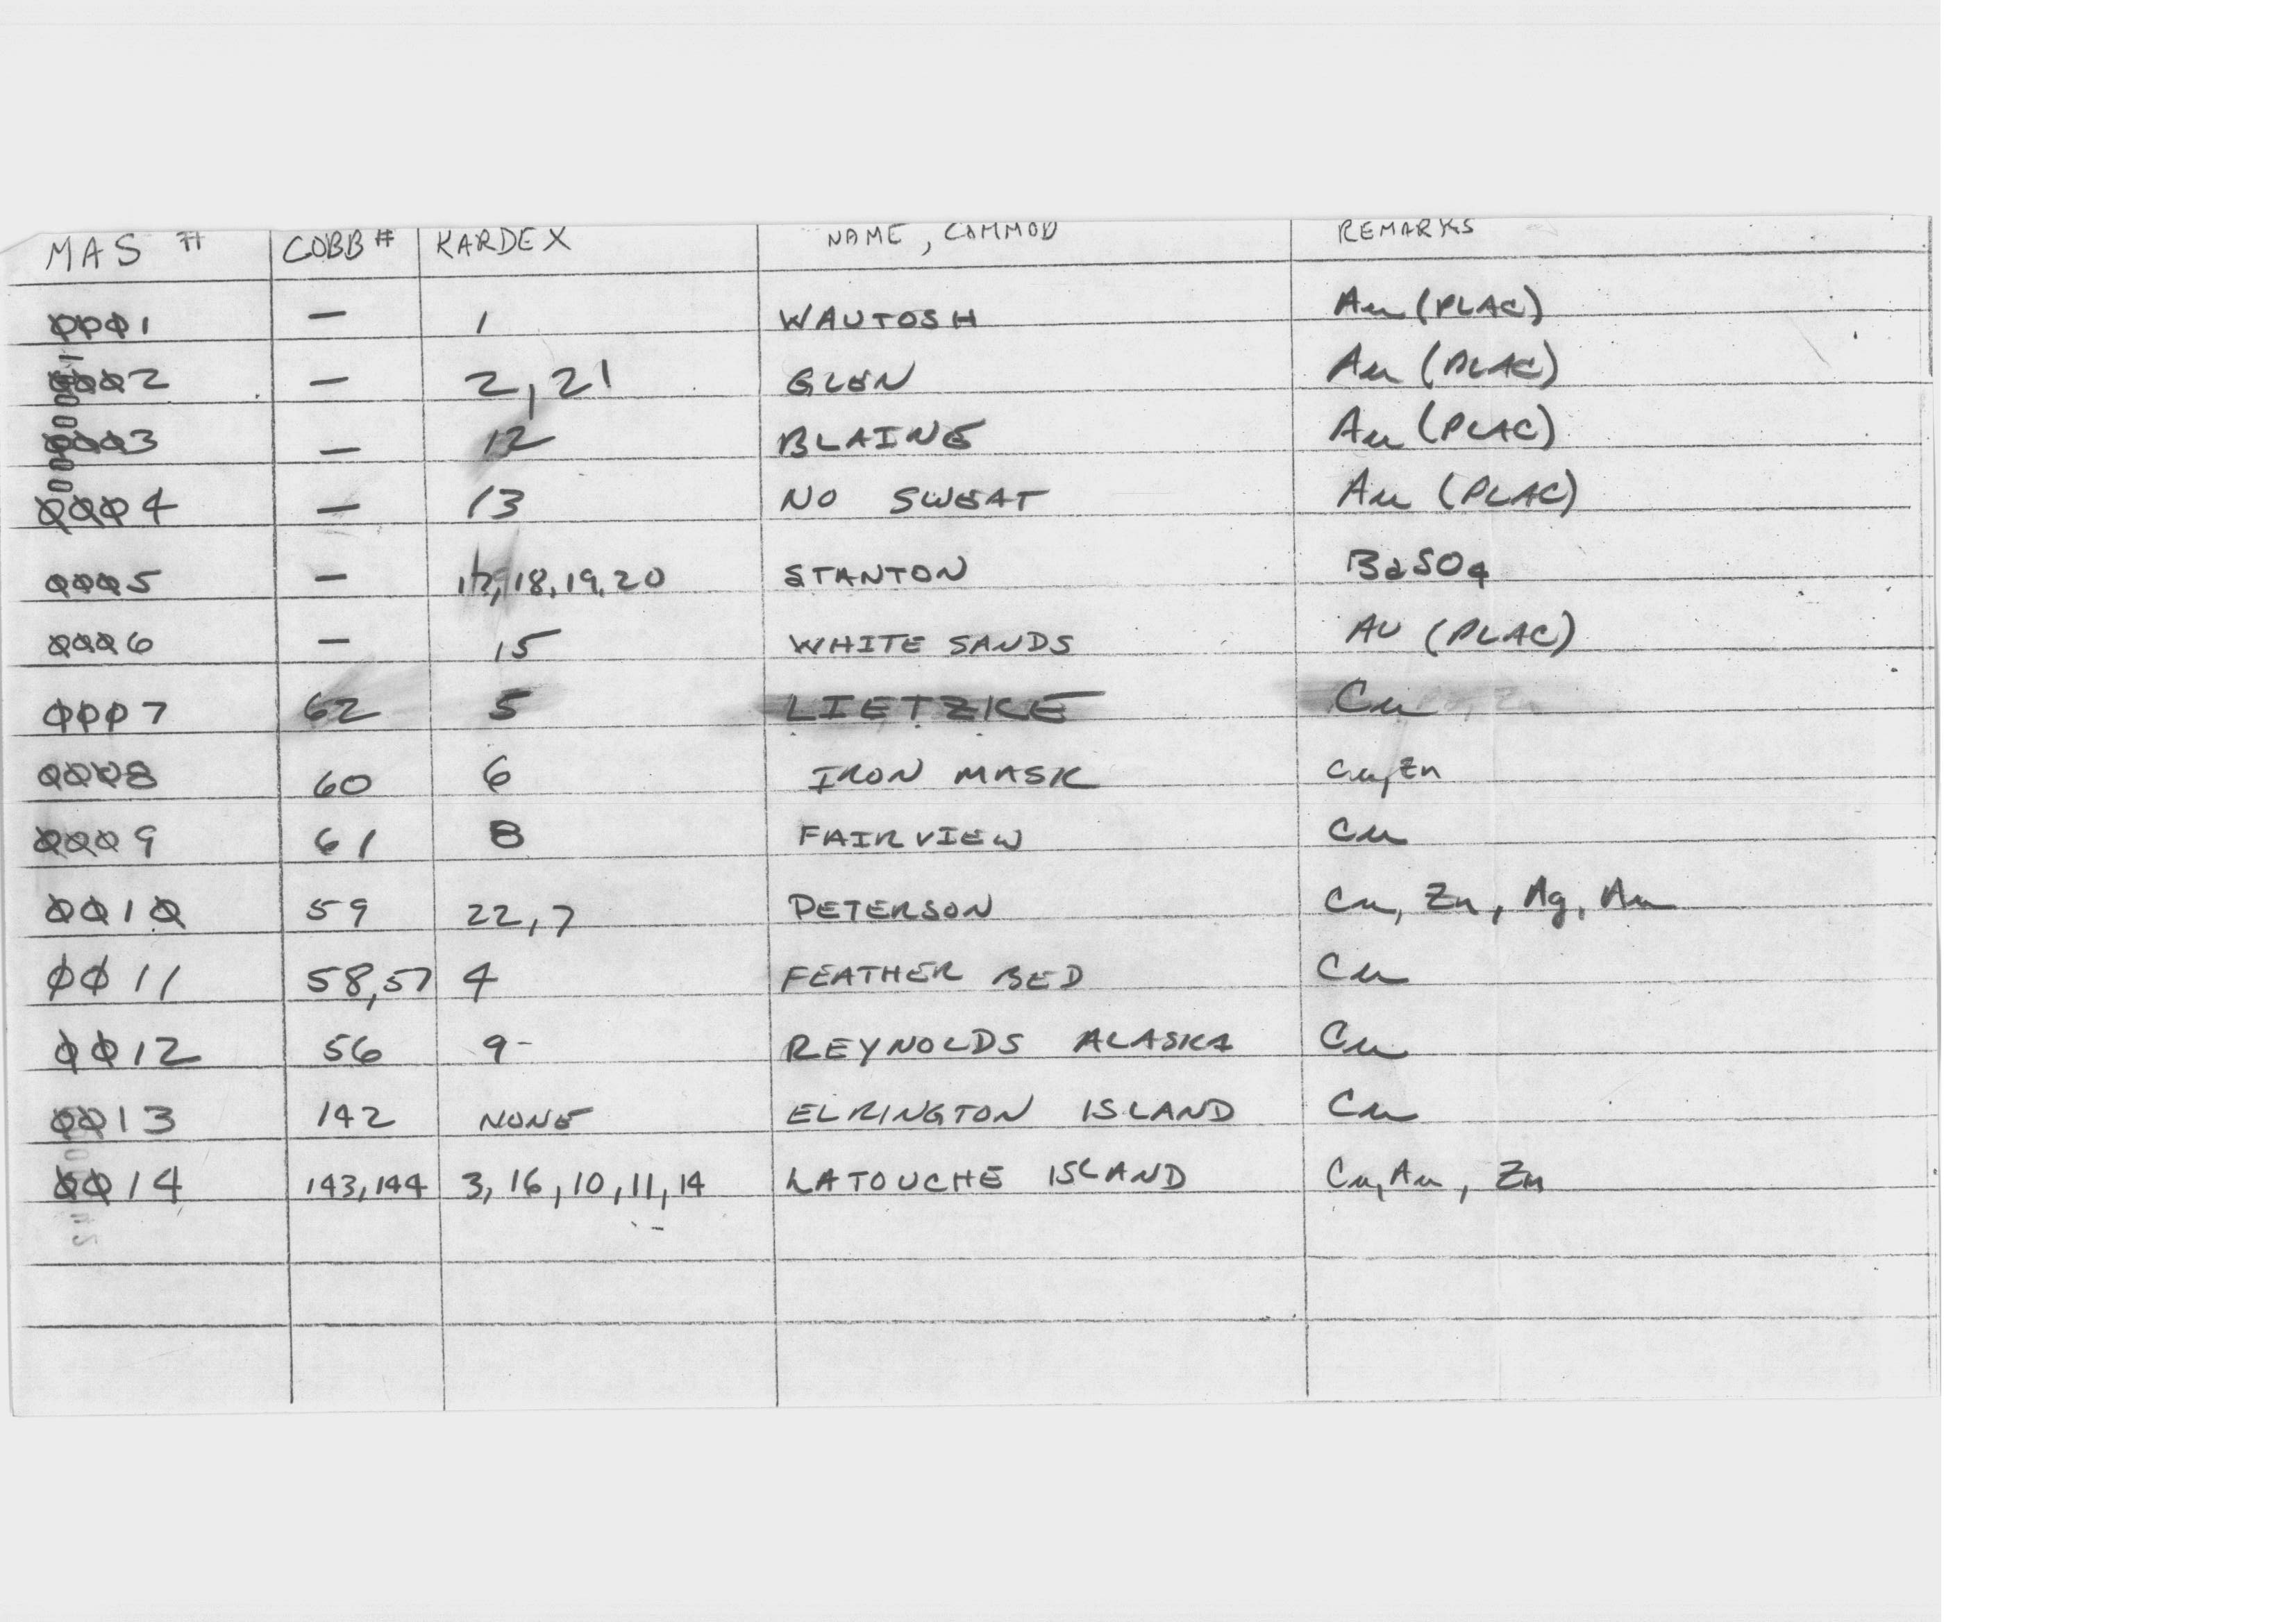 MAS # COBB # KARDEX NAME, COMMOD REMARKS
0001 — 1 WAUTOSH Au (PLAC)
0002 — 2, 21 GLEN Au (PLAC)
0003 — 12 BLAINE Au (PLAC)
0004 — 13 NO SWEAT Au (PLAC)
0005 — 18, 19, 20 STANTON BaSO4
0006 — 15 WHITE SANDS AU (PLAC)
0007 62 5 LIETZKE Cu
0008 60 6 IRON MASK Cu, Zn
0009 61 8 FAIRVIEW Cu
0010 59 22, 7 PETERSON Cu, Zn, Ag, Au
0011 58, 57 4 FEATHER BED Cu
0012 56 9- REYNOLDS ALASKA Cu
0013 142 NONE ELRINGTON ISLAND Cu
0014 143, 144 3, 16, 10, 11, 14 LATOUCHE ISLAND Cu, Au, Zn